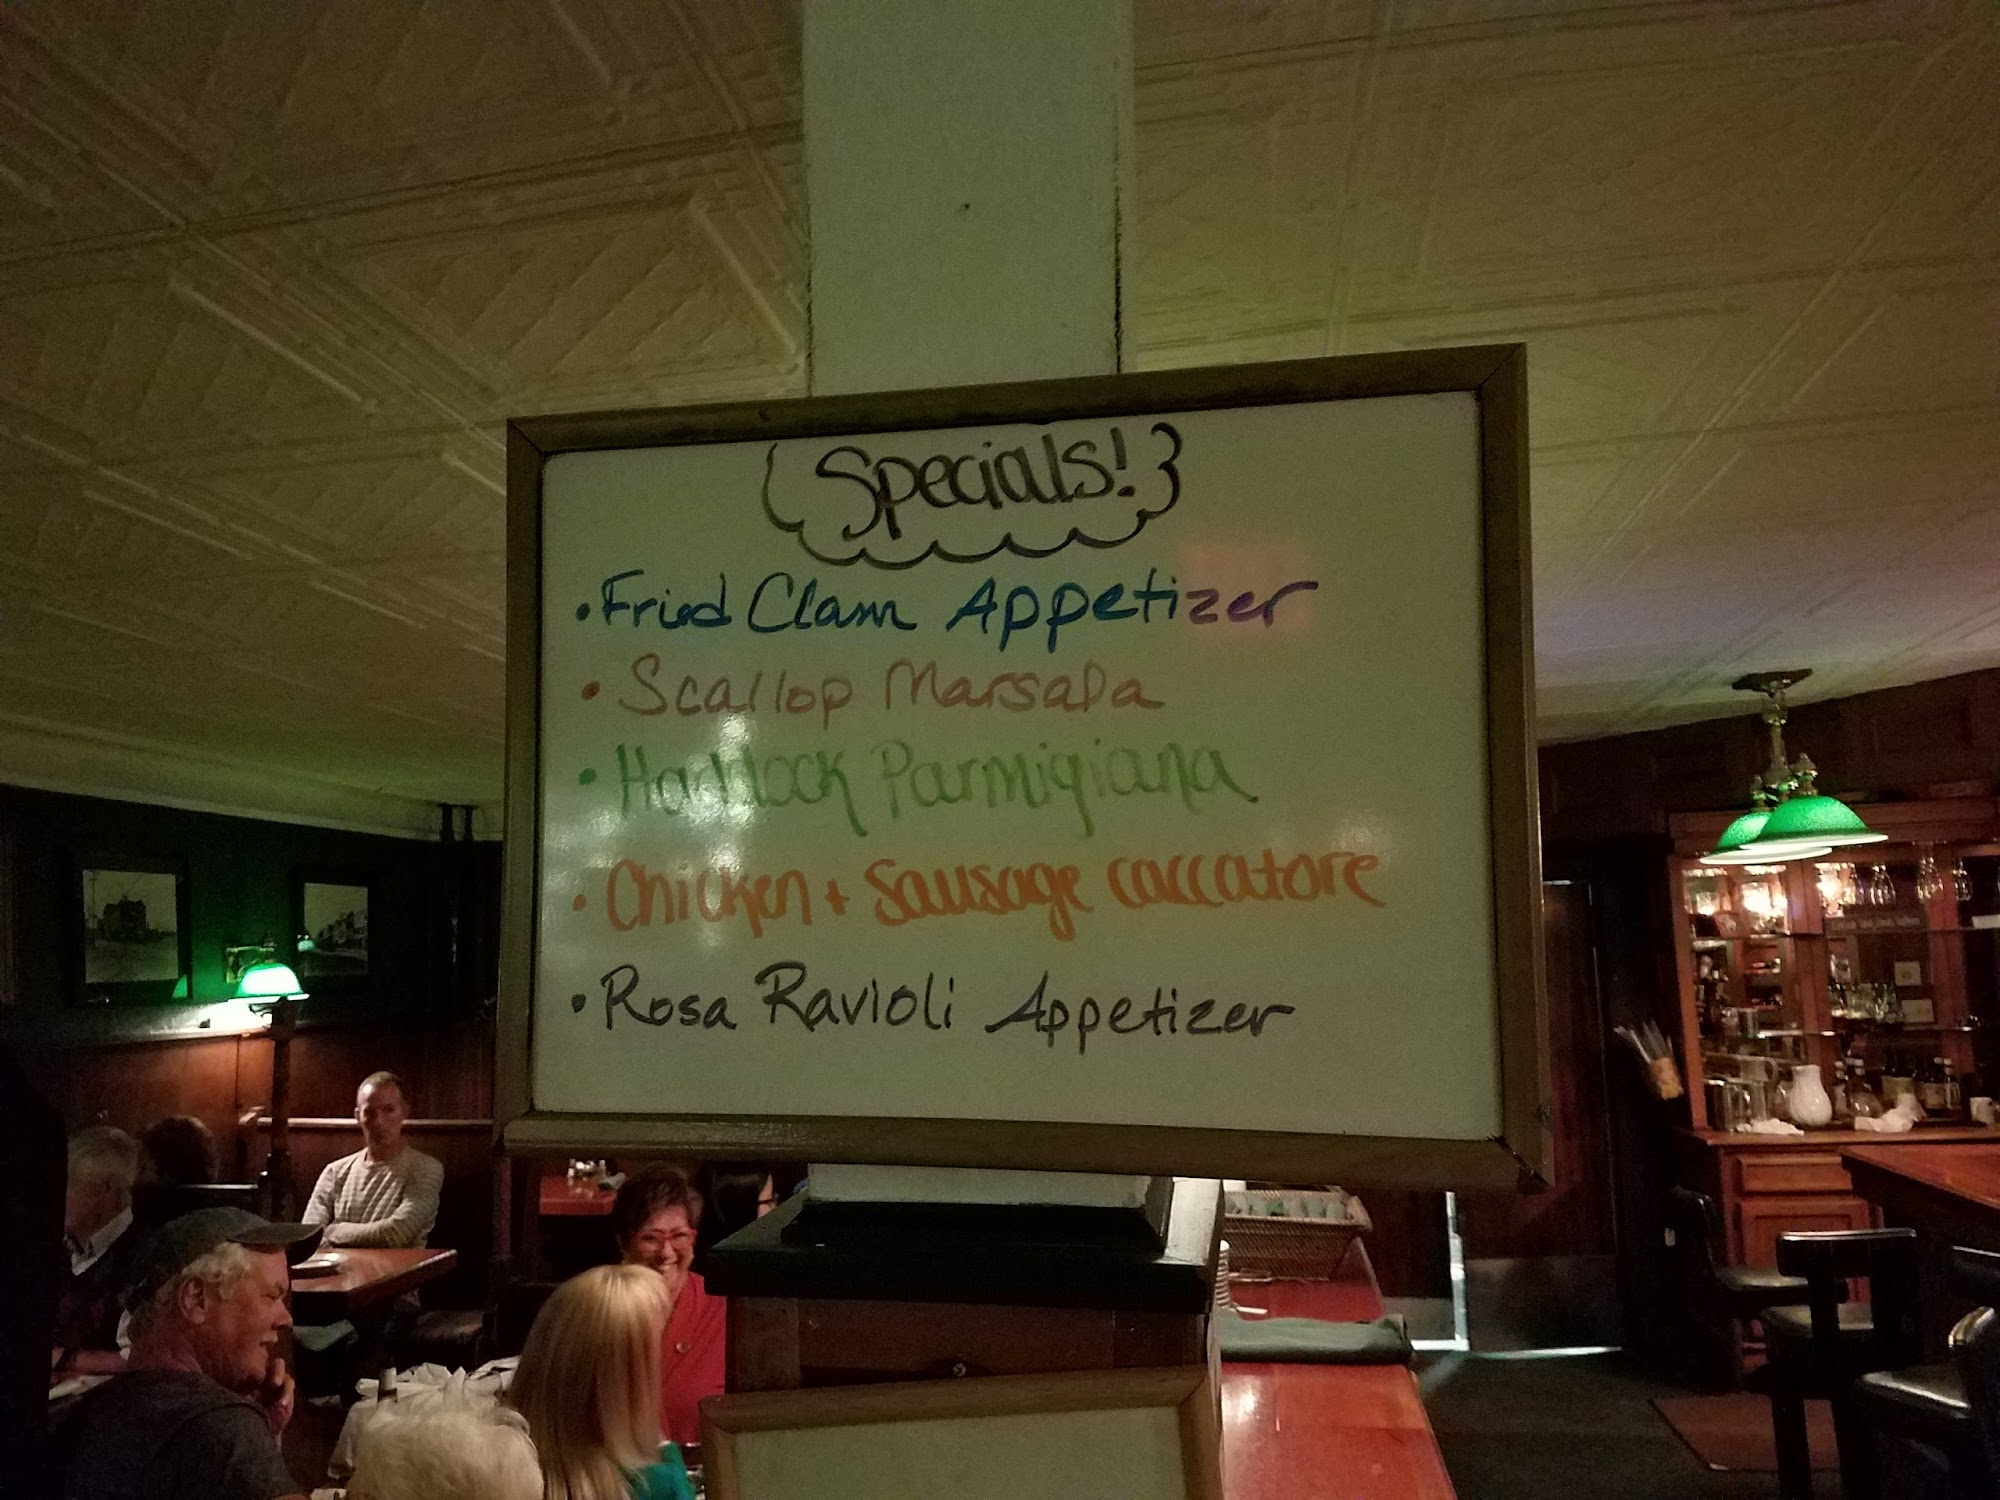 Specials!
• Fried Clam Appetizer
• Scallop Marsala
• Haddock Parmigiana
• Chicken + Sausage Caccatore
• Rosa Ravioli Appetizer